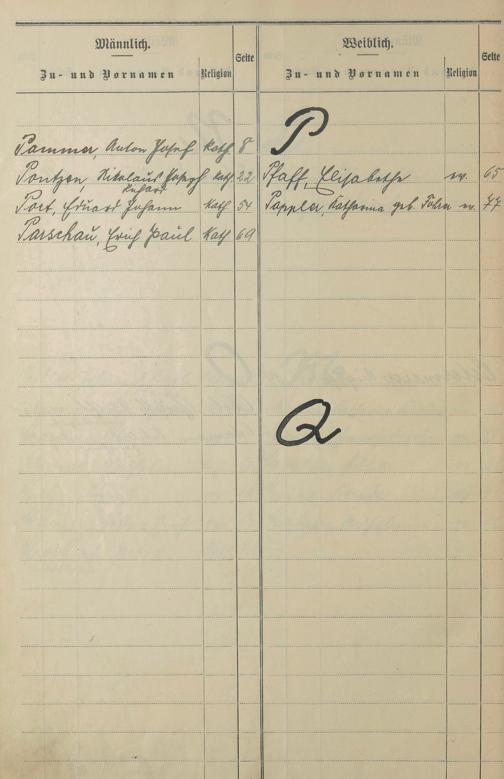 Männlich.
Zu- und Vornamen Religion Seite
Pammer, Anton Josef kath 8
Pontzen, Nikolaus Joseph kath. 22
Port, Eduard Johann kath 54
Parschau, Erich Paul kath 69
Weiblich.
Zu- und Vornamen Religion Seite
P
Pfaff, Elisabethe ev. 65
Pappler, Katharina geb. ev. 77
Q